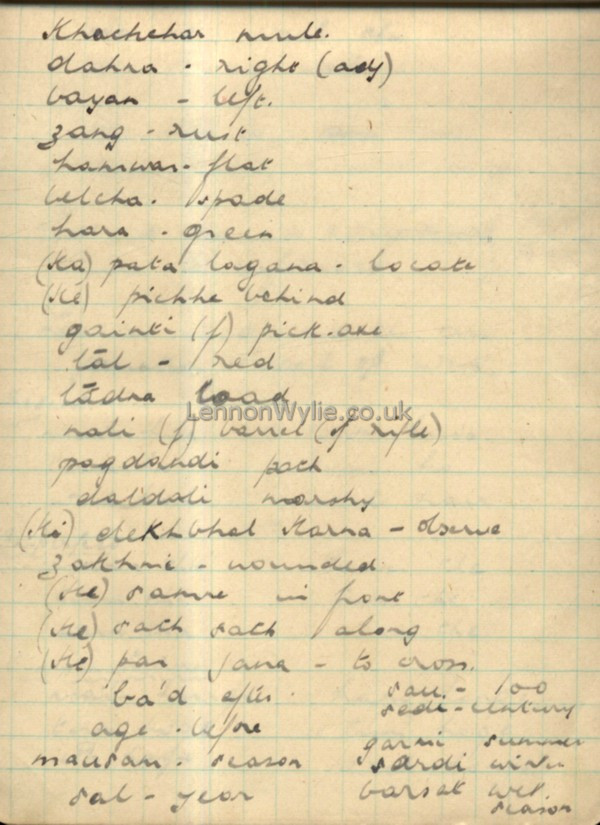 Khachchar mule.
dahna - right (adj)
bayan - left.
zang - rust
hamwar - flat
belcha - spade
hara - green
(Ka) pata lagana - locate
(Ke) pichhe behind
gainti (f) pick-axe
lāl - red
lādna load
LennonWylie.co.uk
nali (f) barrel (of rifle)
pagdandi path
daldali marshy
(Ki) dekhbhal Karna - observe
zakhmi - wounded
(Ke) samne in front
(Ke) sath sath along
(Ke) par jana - to cross.
ba'd after.
age - before
mausam - season
sal - year
sau - 100
sadi - century
garmi summer
sardi winter
barsat wet
season